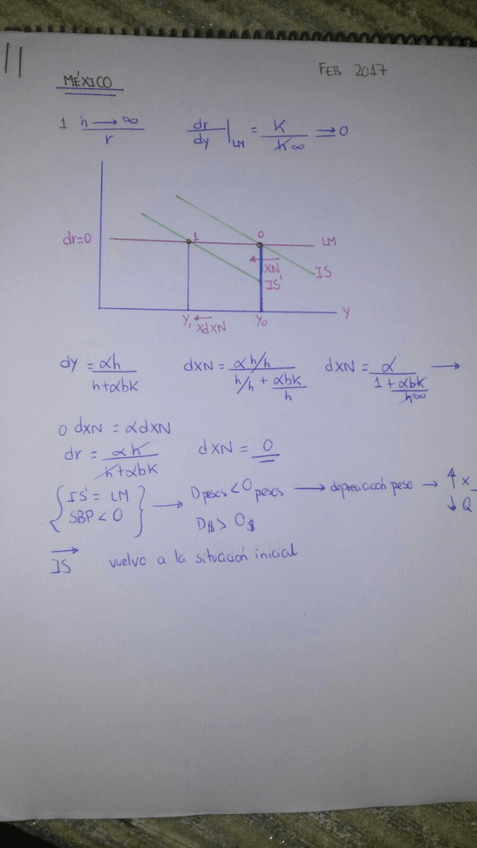 11
FEB 2017
MÉXICO
1. h → ∞
r
dr/dy |LM = K/h∞ ⇒ 0
dr=0
1
0
LM
XN
IS
IS'
Y1
XdXN
Y0
Y
dy = αh/(h+αbk) dXN = (α h/h)/(h/h + αbk/h) dXN = α/(1 + αbk/h∞) →
0 dXN = αdXN
dr = αk/(h+αbk) dXN = 0
{IS' = LM
SBP < 0} → Dpesos < Opesos → depreciación peso → ↑X
D$ > O$ ↓Q
IS vuelvo a la situación inicial